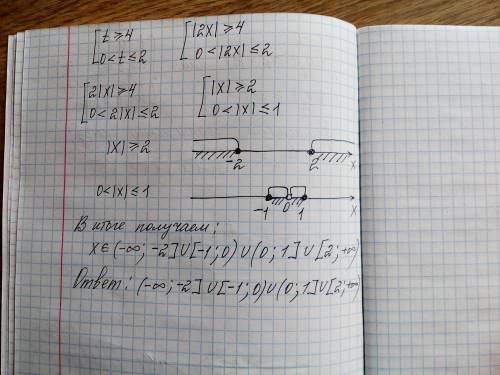 [ t ⩾ 4   [ |2x| ⩾ 4
[ 0 < t ≤ 2   [ 0 < |2x| ≤ 2
[ 2|x| ⩾ 4   [ |x| ⩾ 2
[ 0 < 2|x| ≤ 2   [ 0 < |x| ≤ 1
|x| ⩾ 2
-2 2 x
0 < |x| ≤ 1
-1 0 1 x
В итоге получаем:
x ∈ (-∞; -2] ∪ [-1; 0) ∪ (0; 1] ∪ [2; +∞)
Ответ: (-∞; -2] ∪ [-1; 0) ∪ (0; 1] ∪ [2; +∞)